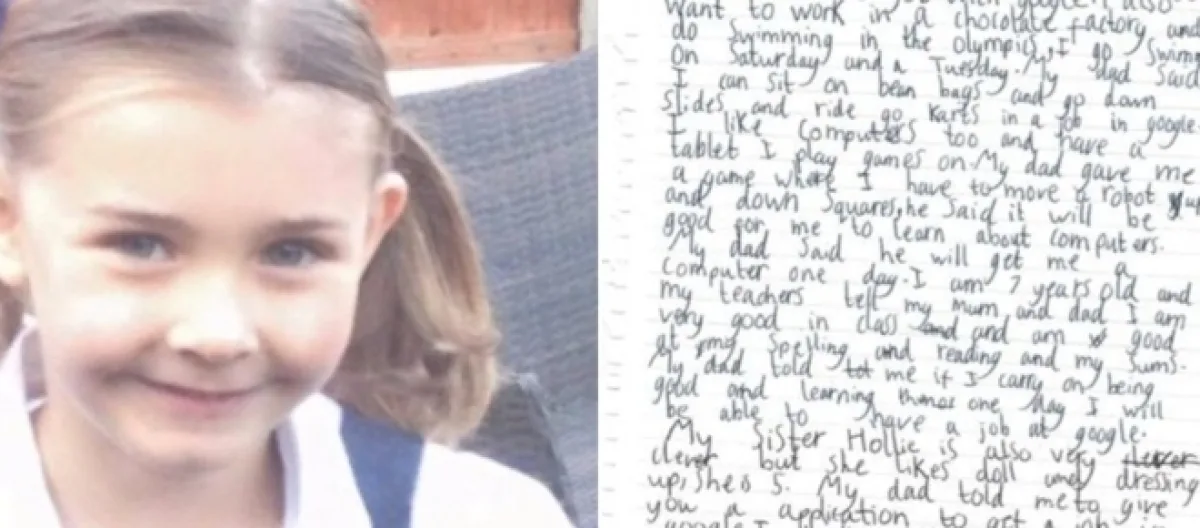 want to work in a chocolate factory and
do swimming in the olympics, I go Swim
on Saturday and a Tuesday. My dad said
I can sit on bean bags and go down
slides and ride go karts in a job in google.
I like computers too and have a
tablet I play games on. My dad gave me
a game where I have to move a robot up
and down squares, he said it will be
good for me to learn about computers.
My dad said he will get me a
computer one day. I am 7 years old and
my teachers tell my mum and dad I am
very good in class and am good
at my spelling and reading and my sums.
My dad told me if I carry on being
good and learning one day I will
be able to have a job at google.
My sister Hollie is also very
clever but she likes doll and dressing
up, shes 5. My dad told me to give
you a application to get
google I